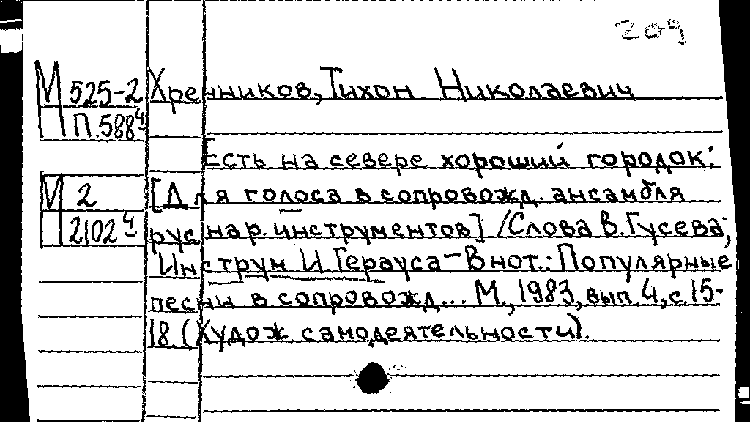 209
М 525-2 Хренников, Тихон Николаевич
Н П.588 4
Есть на севере хороший городок:
М 2 [Для голоса в сопровожд. ансамбля
Н 2102 4 рус нар. инструментов] /Слова В. Гусева;
Инструм И. Герауса - В нот.: Популярные
песни в сопровожд... М., 1983, вып. 4, с 15-
18 (Худож самодеятельности).